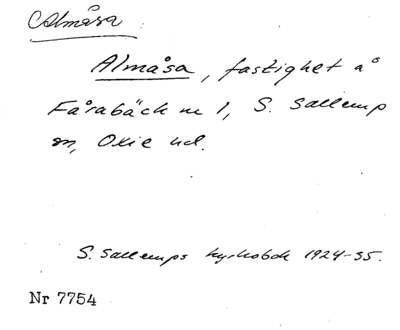 Almåsa
Almåsa, fastighet å
Fårabäck nr 1, S. Sallerup
sn, Oxie hd.
S. Sallerups kyrkobok 1924-35.
Nr 7754